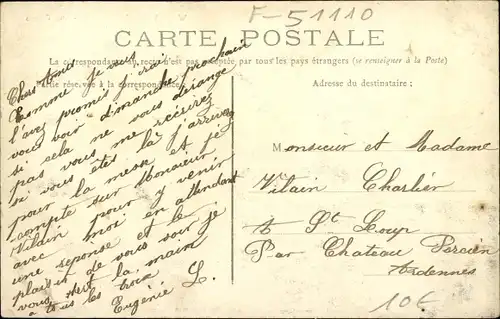 F-51110
CARTE POSTALE
La correspondance au recto n'est pas acceptée par tous les pays étrangers (se renseigner à la Poste)
Partie réservée à la correspondance
Adresse du destinataire :
Chers Amis
Comme je vous
l'avez promis j'irai
vous voir dimanche prochain
si cela ne vous dérange
pas vous me recevrez
si vous êtes là j'arriverez
pour la messe et je
compte sur Monsieur
Vilain pour y venir
avec moi en attendant
une reponse et le
plaisir de vous voir je
vous sert la main
à tous les trois
Eugénie L.
Monsieur et Madame
Vilain Charlier
à St Loup
Par Chateau Porcien
Ardennes
10€